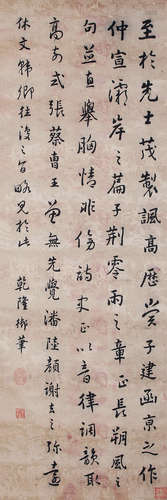 至於先士茂製諷高歷賞子建函京之作
仲宣灞岸之篇子荊零雨之章正長朔風之
句並直舉胸情非傍詩史正以音律調韻取
高前式張蔡曹王曾無先覺潘陸顏謝去之彌遠
休文韓卿往復之旨略見於此 乾隆御筆